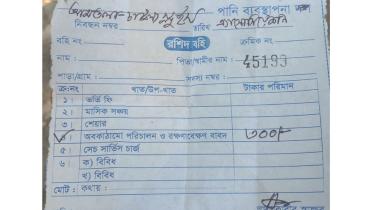 পানি ব্যবস্থাপনা
নিবন্ধন নম্বর তারিখ
বহি নং রশিদ বহি ক্রমিক নং
নাম : পিতা/স্বামীর নাম : 45193
পাড়া/গ্রাম : সদস্য নম্বর :
ক্রঃনং খাত/উপ-খাত টাকার পরিমান
১। ভর্তি ফি
২। মাসিক সঞ্চয়
৩। শেয়ার
৪। অবকাঠামো পরিচালন ও রক্ষণাবেক্ষণ বাবদ ৩০০/-
৫। সেচ সার্ভিস চার্জ
৬। ক) বিবিধ
খ) বিবিধ
মোট : কথায় :